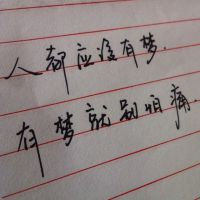 人都应该有梦.
有梦就别怕痛.